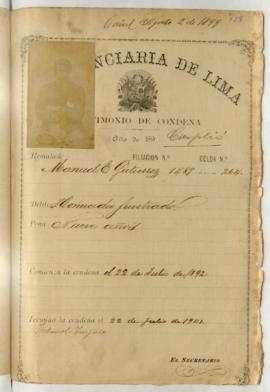 Agosto 2 de 1899
NCIARIA DE LIMA
TIMONIO DE CONDENA
Año de 189 Cumplió
Rematado FILIACION N.º CELDA N.º
Manuel E. Gutierrez 1487 264
Delito Homicidio frustrado
Pena Nueve años
Comienza la condena el 22 de Julio de 1892
Termina la condena el 22 de julio de 1901
Tribunal
EL SECRETARIO